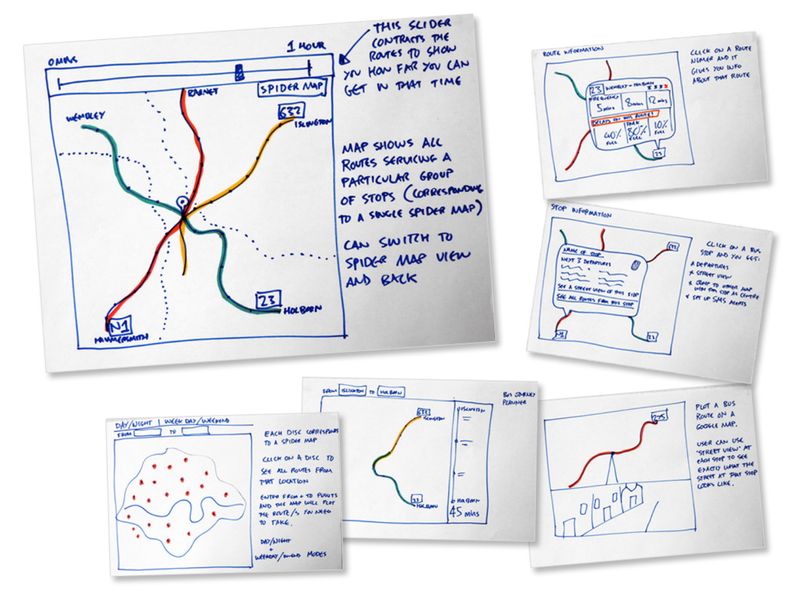 0 MINS
1 HOUR
SPIDER MAP
BARNET
WEMBLEY
632
ISLINGTON
23
HOLBORN
N1
HAMMERSMITH
THIS SLIDER
CONTRACTS THE
ROUTES TO SHOW
YOU HOW FAR YOU CAN
GET IN THAT TIME
MAP SHOWS ALL
ROUTES SERVICING A
PARTICULAR GROUP
OF STOPS (CORRESPONDING
TO A SINGLE SPIDER MAP)
CAN SWITCH TO
SPIDER MAP VIEW
AND BACK
ROUTE INFORMATION
23 WEMBLEY - HOLBORN
FREQUENCY
5 mins 8 mins 12 mins
40% 80% 10%
FULL FULL FULL
23
CLICK ON A ROUTE
NUMBER AND IT
GIVES YOU INFO
ABOUT THAT ROUTE
STOP INFORMATION
NAME OF STOP
NEXT 3 DEPARTURES
SEE A STREET VIEW OF THIS STOP
SEE ALL ROUTES FROM THIS STOP
23
CLICK ON A BUS
STOP AND YOU GET:
DEPARTURES
STREET VIEW
JUMP TO
WITH THIS STOP AS CENTRE
SET UP SMS ALERTS
DAY/NIGHT | WEEK DAY/WEEKEND
FROM TO
EACH DISC CORRESPONDS
TO A SPIDER MAP
CLICK ON A DISC TO
SEE ALL ROUTES FROM
THAT LOCATION
ENTER FROM + TO POINTS
AND THE MAP WILL PLOT
THE ROUTE/S YOU NEED
TO TAKE.
DAY/NIGHT
+
WEEKDAY/ MODES
FROM ISLINGTON TO HOLBORN
BUS JOURNEY
PLANNER
632
ISLINGTON
23
HOLBORN
ISLINGTON
HOLBORN
45 mins
275
PLOT A BUS
ROUTE ON A
GOOGLE MAP.
USER CAN USE
'STREET VIEW' AT
EACH STOP TO SEE
EXACTLY WHAT THE
STREET AT THAT STOP
LOOKS LIKE.